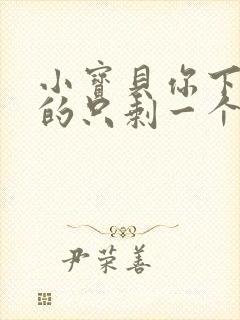 小寳貝你下
的只剩一个
尹荣善